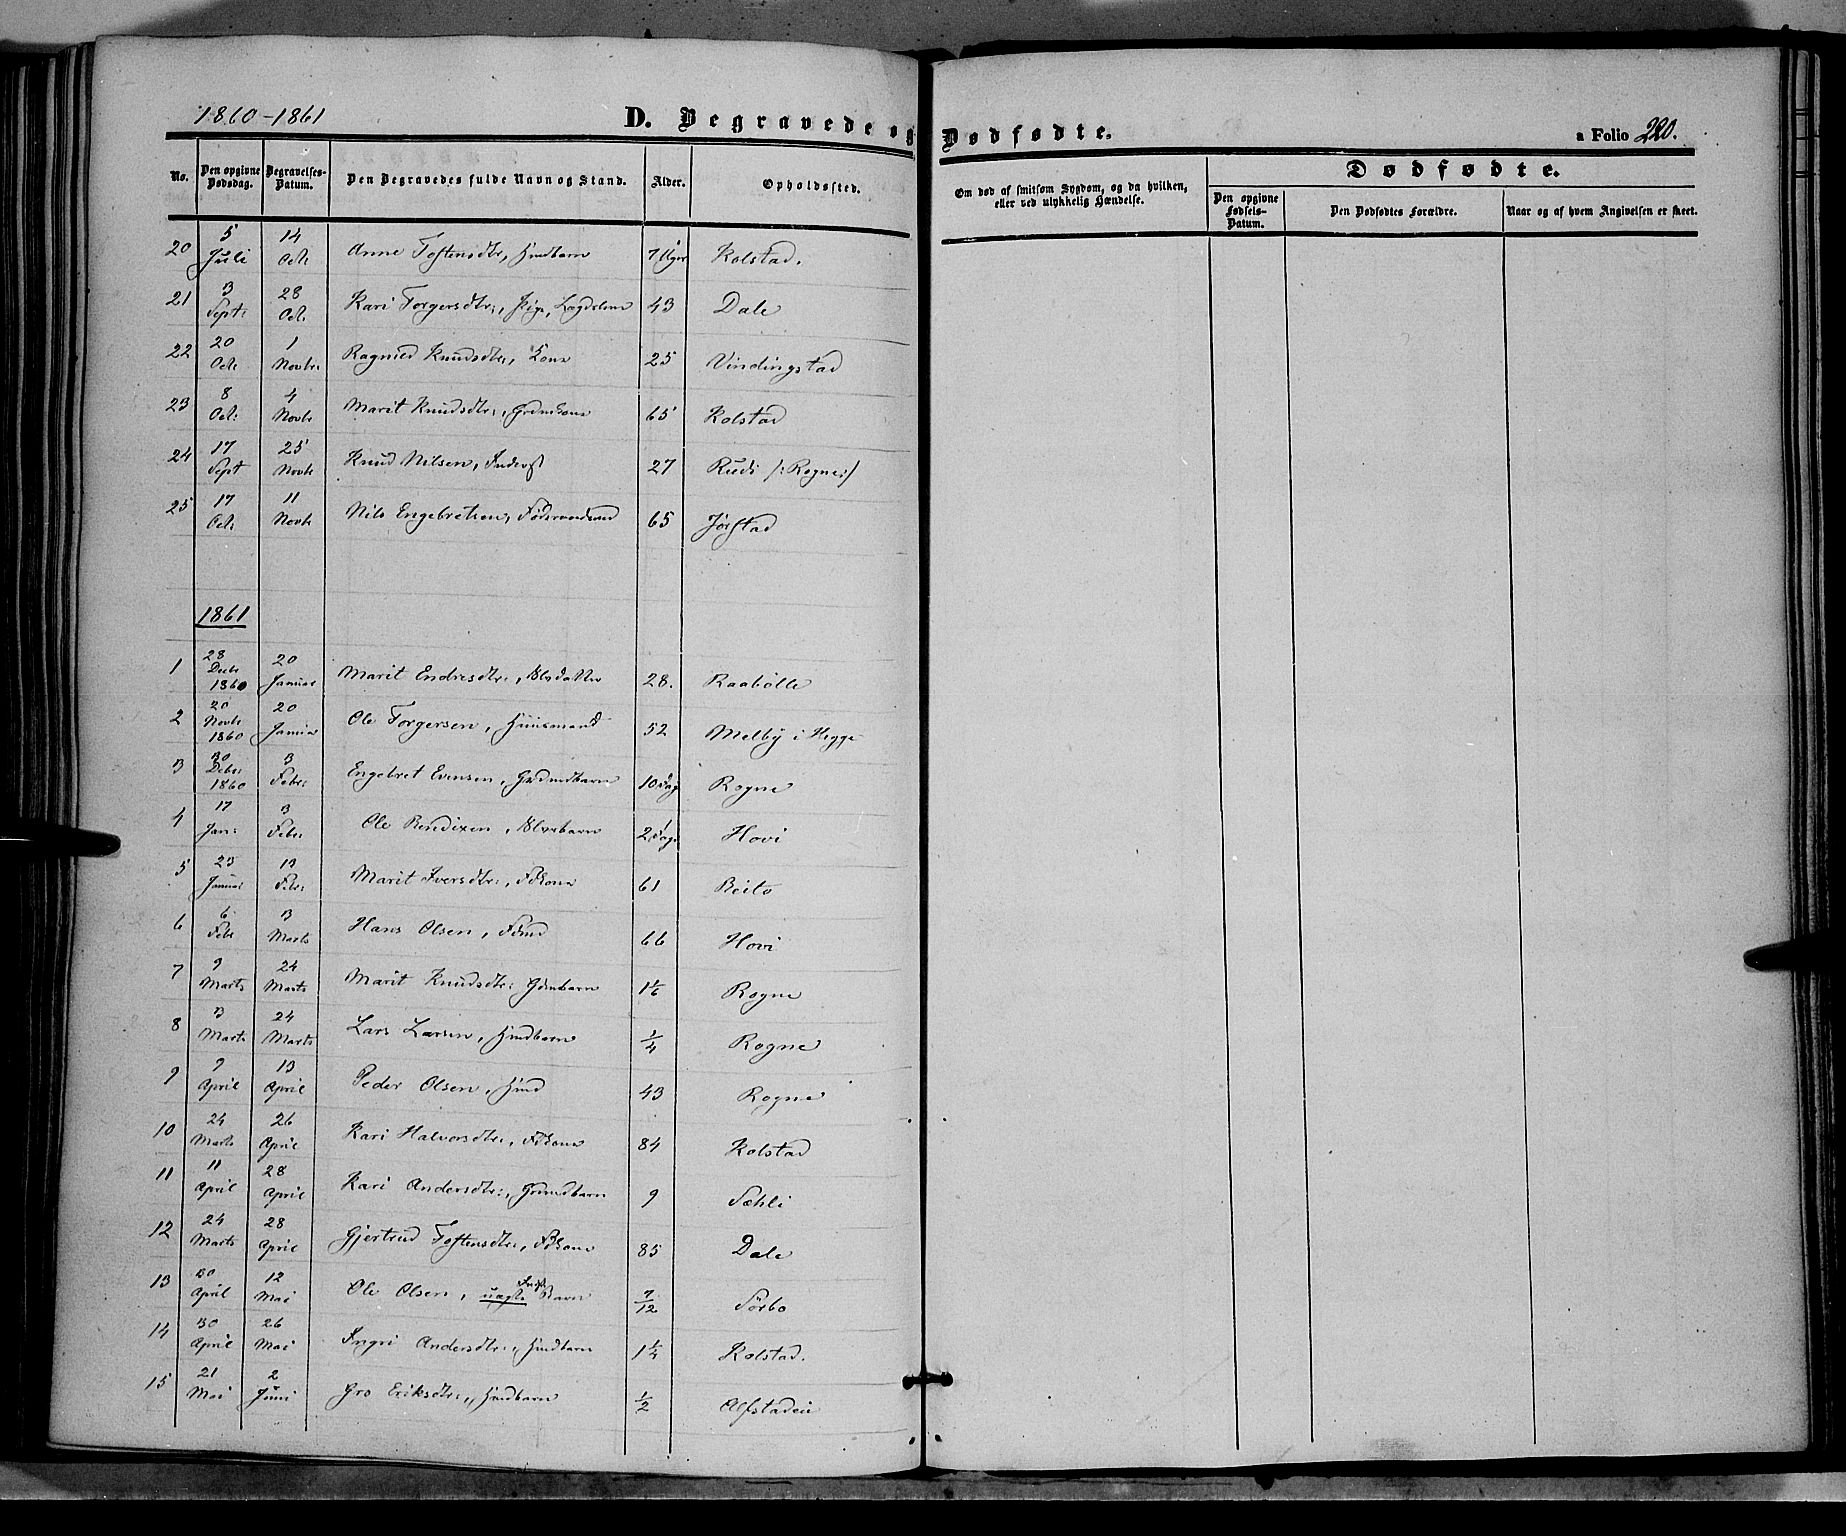 1860-1861
D. Begravede og Dødfødte.
a Folio 220.
No.
Den opgivne Dødsdag.
Begravelses-Datum.
Den Begravedes fulde Navn og Stand.
Alder.
Opholdssted.
Om død af smitsom Sygdom, og da hvilken, eller ved ulykkelig Hændelse.
Dødfødte.
Den opgivne Fødsels-Datum.
Den Dødfødtes Forældre.
Naar og af hvem Angivelsen er skeet.
20 5 Juli 14 Oct: Anne Tostensdtr, Hmdbarn 7 Kolstad.
21 3 Sept: 28 Oct: Kari Torgersdtr:, Pige, Lægdslem 43 Dale
22 20 Oct: 1 Novbr: Ragnild Knudsdtr:, Kone 25 Vindingstad
23 8 Oct: 4 Novbr Marit Knudsdtr:, Grdmkone 65 Kolstad
24 17 Sept 25 Novbr Knud Nilsen, Inderst 27 Rudi /:Rogne:/
25 17 Oct: 11 Novbr Nils Engebretsen, Føderaadsmd 65 Jørstad
1861
1 28 Decbr 1860 20 Januar Marit Endresdtr:, 28. Raabølle
2 20 Novbr 1860 20 Januar Ole Torgersen, Huusmand 52 Melby i Hegge
3 30 Debr: 1860 3 Febr: Engebret Evensen, Grdmdbarn 10 Dag Rogne
4 17 Jan: 3 Febr Ole Bendixen, 2 Dage Hovi
5 23 Januar 13 Febr: Marit Iversdtr:, Fdkone 61 Beito
6 6 Febr 3 Marts Hans Olsen, Fdmd 66 Hovi
7 9 Marts 24 Marts Marit Knudsdtr: Gdmbarn 1 1/6 Rogne
8 3 Marts 24 Marts Lars Larsen, Hmdbarn 1/4 Rogne
9 9 April 13 April Peder Olsen, Hmd 43 Rogne
10 24 Marts 26 April Kari Halvorsdtr:, Fdkone 84 Kolstad
11 11 April 28 April Kari Andersdtr:, Grdmdbarn 9 Sæhli
12 24 Marts 28 April Gjertrud Tostensdtr:, Fdkone 85 Dale
13 30 April 12 Mai Ole Olsen, uægte Indst Barn 7/12 Sørbo
14 30 April 26 Mai Ingri Andersdtr:, Hmdbarn 1 1/4 Kolstad.
15 21 Mai 2 Juni Gro Eriksdtr:, Hmdbarn 1/2 Alfstadeie